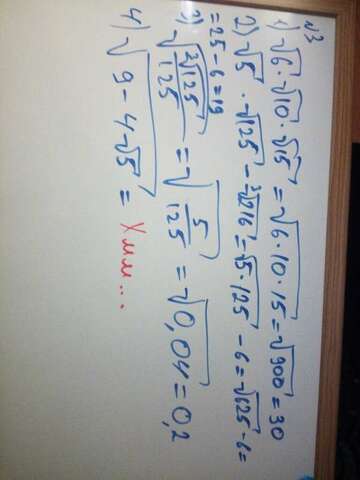 №3
1) √6 · √10 · √15 = √6·10·15 = √900 = 30
2) √5 · √125 - ³√216 = √5·125 - 6 = √625 - 6 =
= 25 - 6 = 19
3) √³√125/125 = √5/125 = √0,04 = 0,2
4) √9 - 4√5 = Хмм...